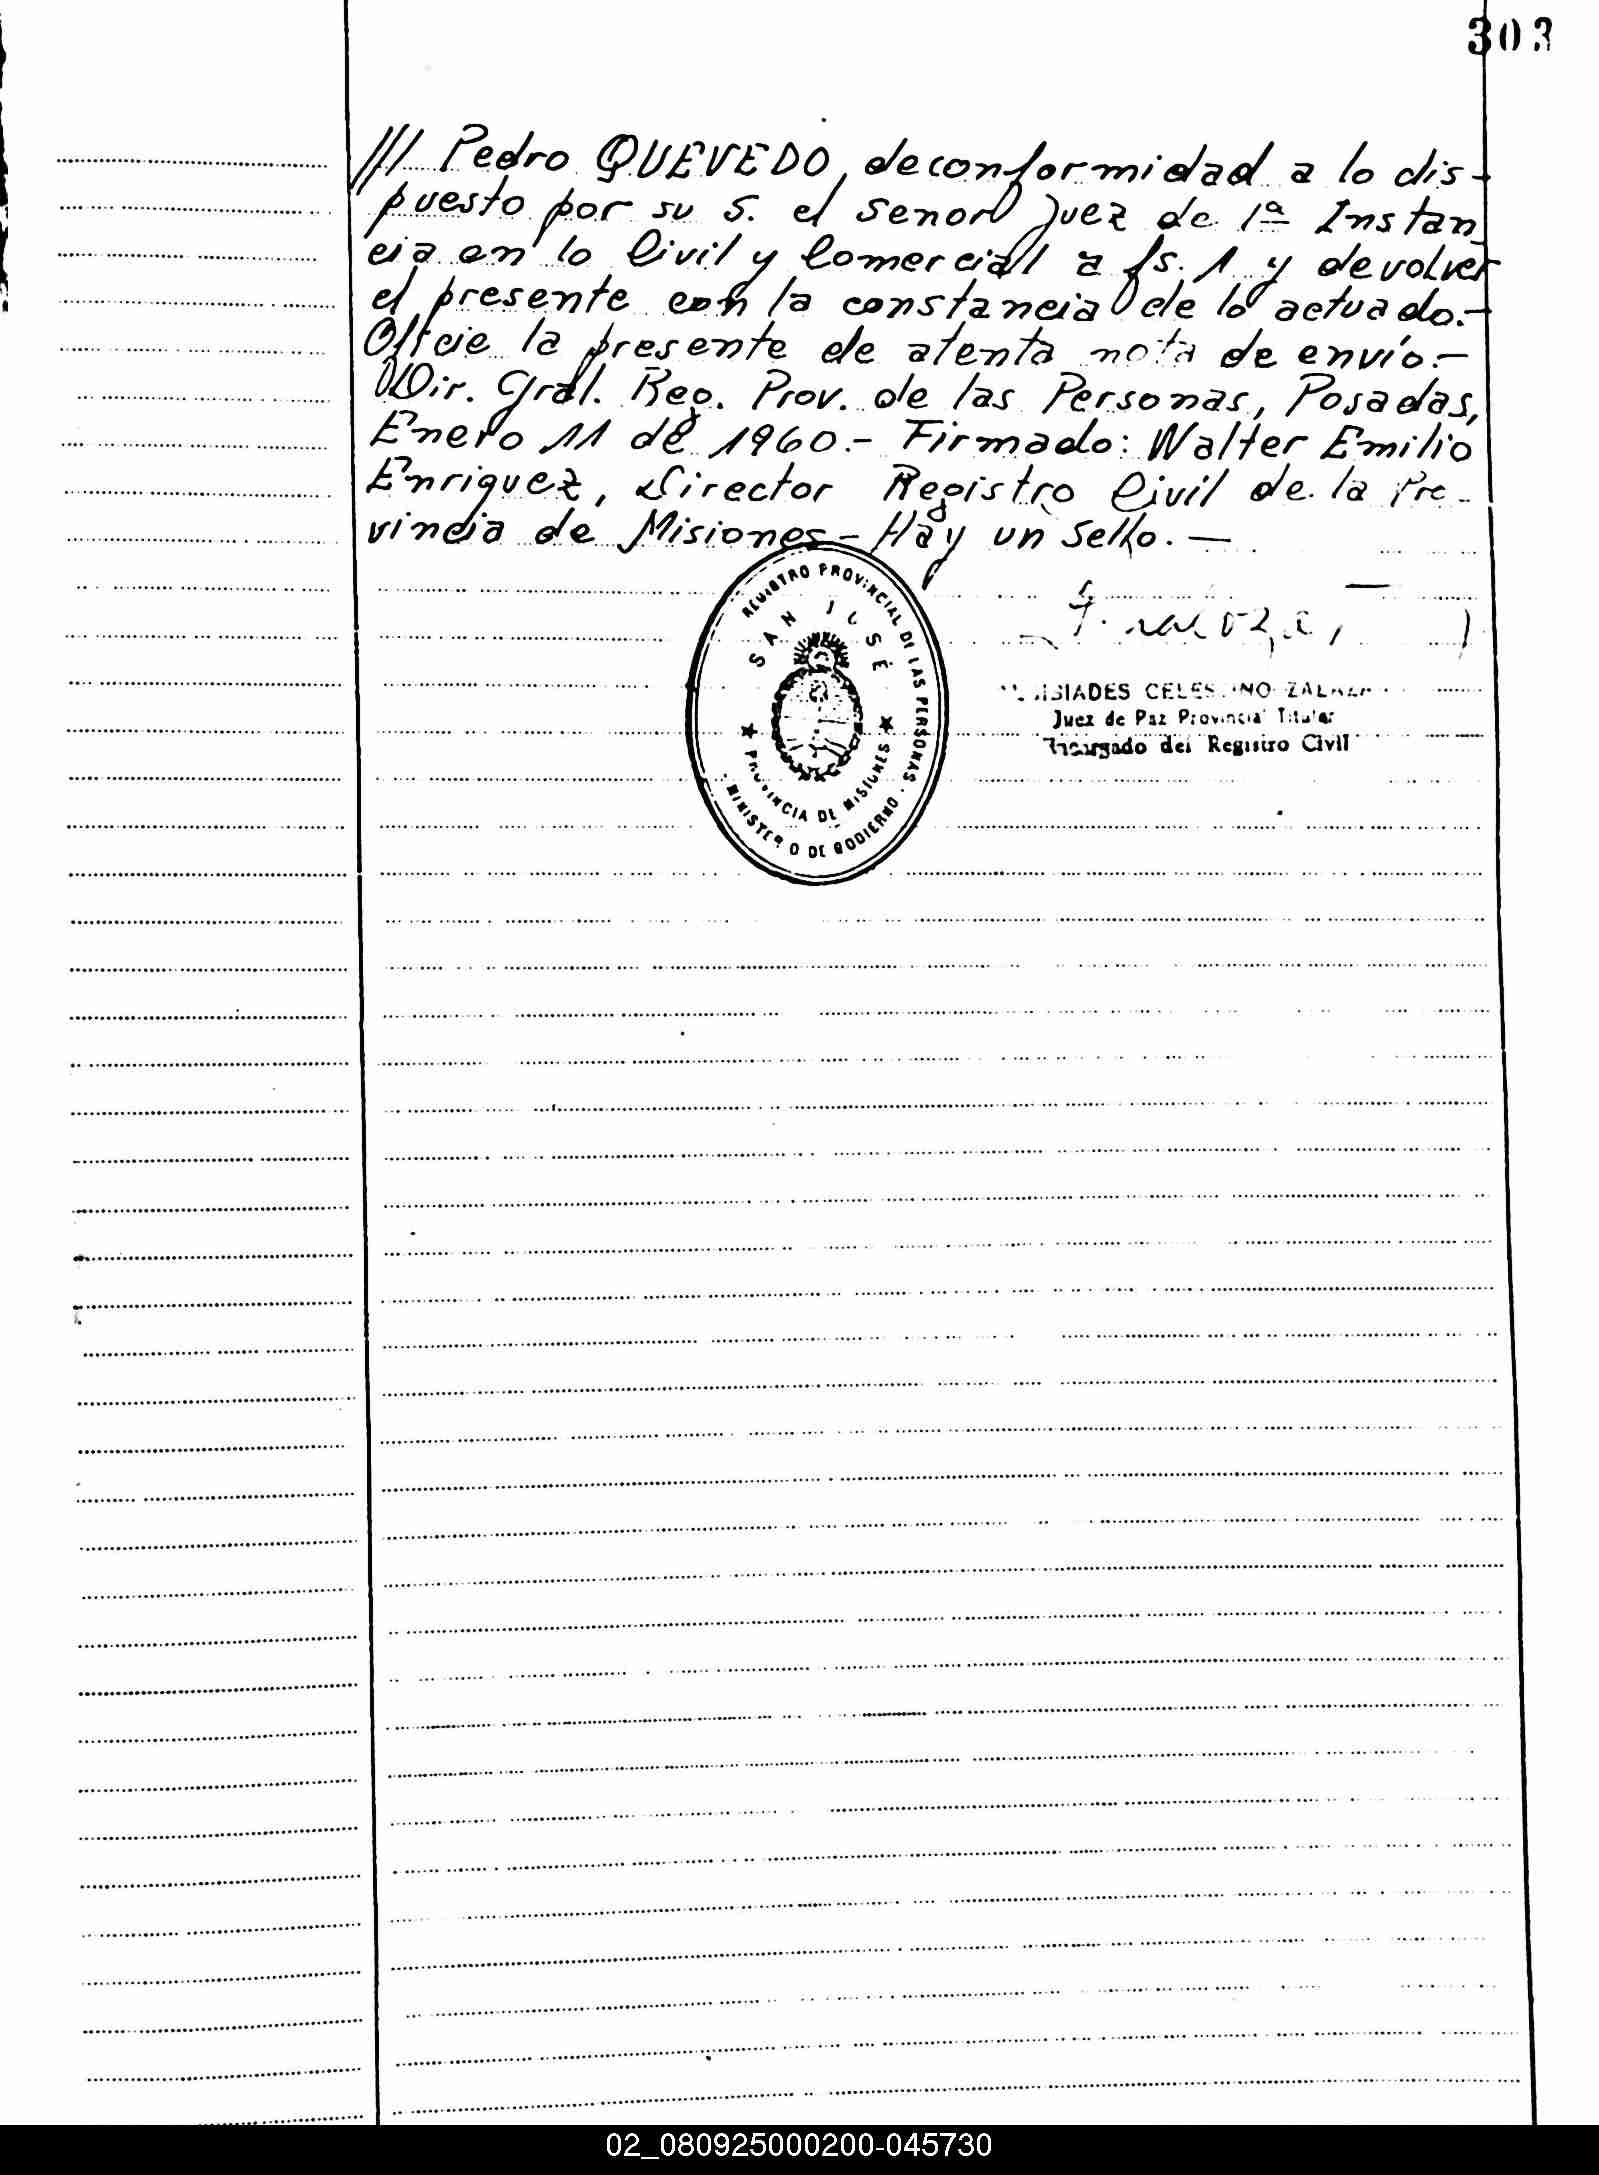 303
/// Pedro QUEVEDO, de conformidad a lo dis-
puesto por su S. el Señor Juez de 1ª Instan
cia en lo Civil y Comercial a fs. 1 y devolver
el presente con la constancia de lo actuado.-
Oficie la presente de atenta nota de envío.-
Dir. Gral. Reg. Prov. de las Personas, Posadas,
Enero 11 de 1960.- Firmado: Walter Emilio
Enriquez, Director Registro Civil de la Pro-
vincia de Misiones - Hay un Sello. —
REGISTRO PROVINCIAL DE LAS PERSONAS
SAN JOSÉ
PROVINCIA DE MISIONES
MINISTERIO DE GOBIERNO
CELESTINO
Juez de Paz Provincial Titular
Encargado del Registro Civil
02_080925000200-045730